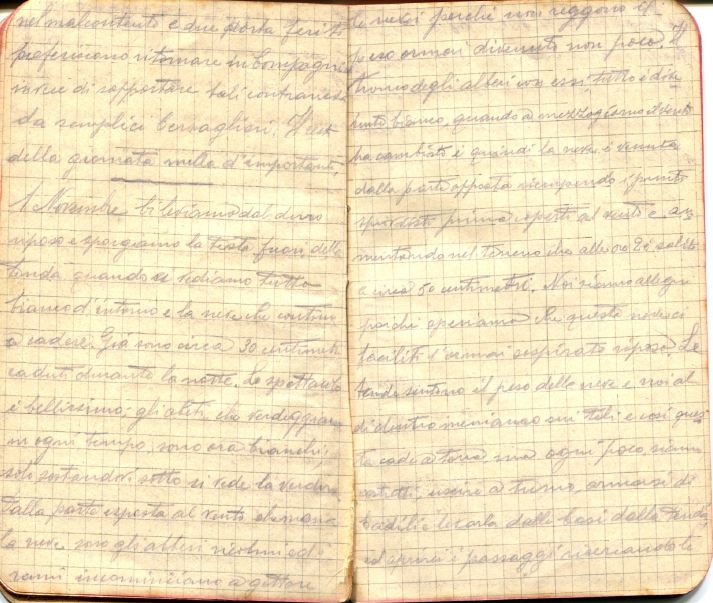 nel malcontento e due volte feriti
preferiscono ritornare in Compagnia
invece di sopportare tali
da semplici bersaglieri. Il resto
della giornata nulla d'importante.
1 Novembre Ci leviamo dal duro
riposo e sporgiamo la testa fuori della
tenda quando vediamo tutto
bianco d'intorno e la neve che continua
a cadere. Già sono circa 30 centimetri
caduti durante la notte. Lo spettacolo
è bellissimo; gli abeti, che verdeggiano
in ogni tempo, sono ora bianchi;
solo sostandovi sotto si vede la verdura
dalla parte esposta al vento che mena
la neve sono gli alberi ricolmi ed i
rami incominciano a gettare
la neve perchè non reggono il
peso ormai divenuto non poco. Il
tronco degli alberi con essi, tutto è
bianco, quando a mezzogiorno il vento
ha cambiato e quindi la neve è venuta
dalla parte opposta riempendo i punti
prima coperti al vento e au
mentando nel terreno che alle ore 24 salito
a circa 50 centimetri. Noi siamo allegri
perchè speriamo che questa neve ci
faciliti l'ormai sospirato riposo. Le
tende sentono il peso della neve e noi al
di dentro meniamo sui teli e così ques
ta cade a terra ma ogni poco, siamo
costretti uscire a turno, armarsi di
badili e levarla dalle basi della tenda
ed aprirci i passaggi